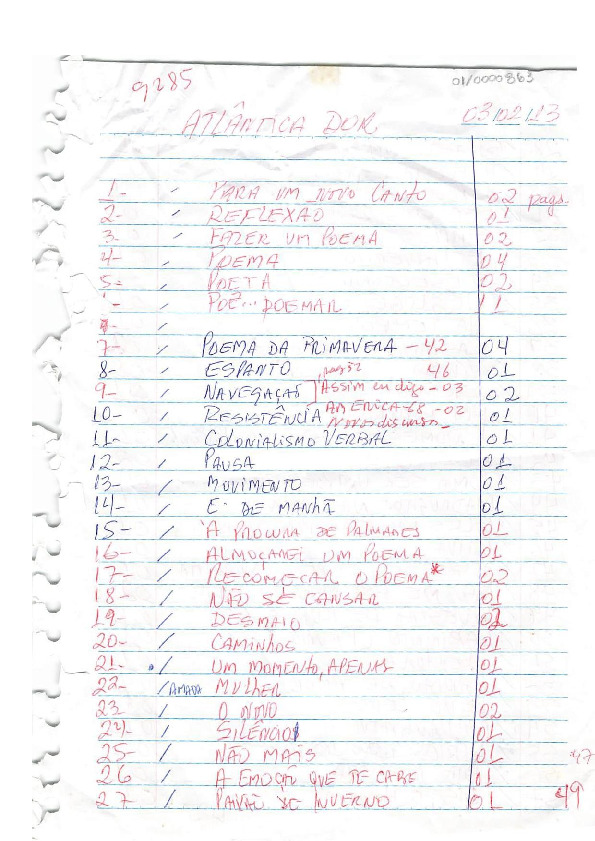 9285
01/0000863
ATLÂNTICA DOR 03/02/13
1- / PARA UM NOVO CANTO 02 pags.
2- / REFLEXÃO 01
3- / FAZER UM POEMA 02
4- / POEMA 04
5- / POETA 02
- / POE... POEMAR 11
/
7- / POEMA DA PRIMAVERA - 42 04
8- / ESPANTO 46 01
9- / NAVEGAÇÃO Assim eu digo - 03 02
10- / RESISTÊNCIA AMERICA-68 - 02 01
11- / COLONIALISMO VERBAL 01
12- / PAUSA 01
13- / MOVIMENTO 01
14- / E DE MANHÃ 01
15- / À PROCURA DE PALMARES 01
16- / ALMOÇAREI UM POEMA 01
17- / RECOMEÇAR O POEMA* 02
18- / NÃO SE CANSAR 01
19- / DESMAIO 02
20- / CAMINHOS 01
21- / UM MOMENTO, APENAS 01
22- / AMADA MULHER 01
23 / O NOVO 02
24- / SILÊNCIO 01
25- / NÃO MAIS 01 47
26 / A EMOÇÃO QUE TE CABE 01
27 / PAIXÃO DE INVERNO 01 49